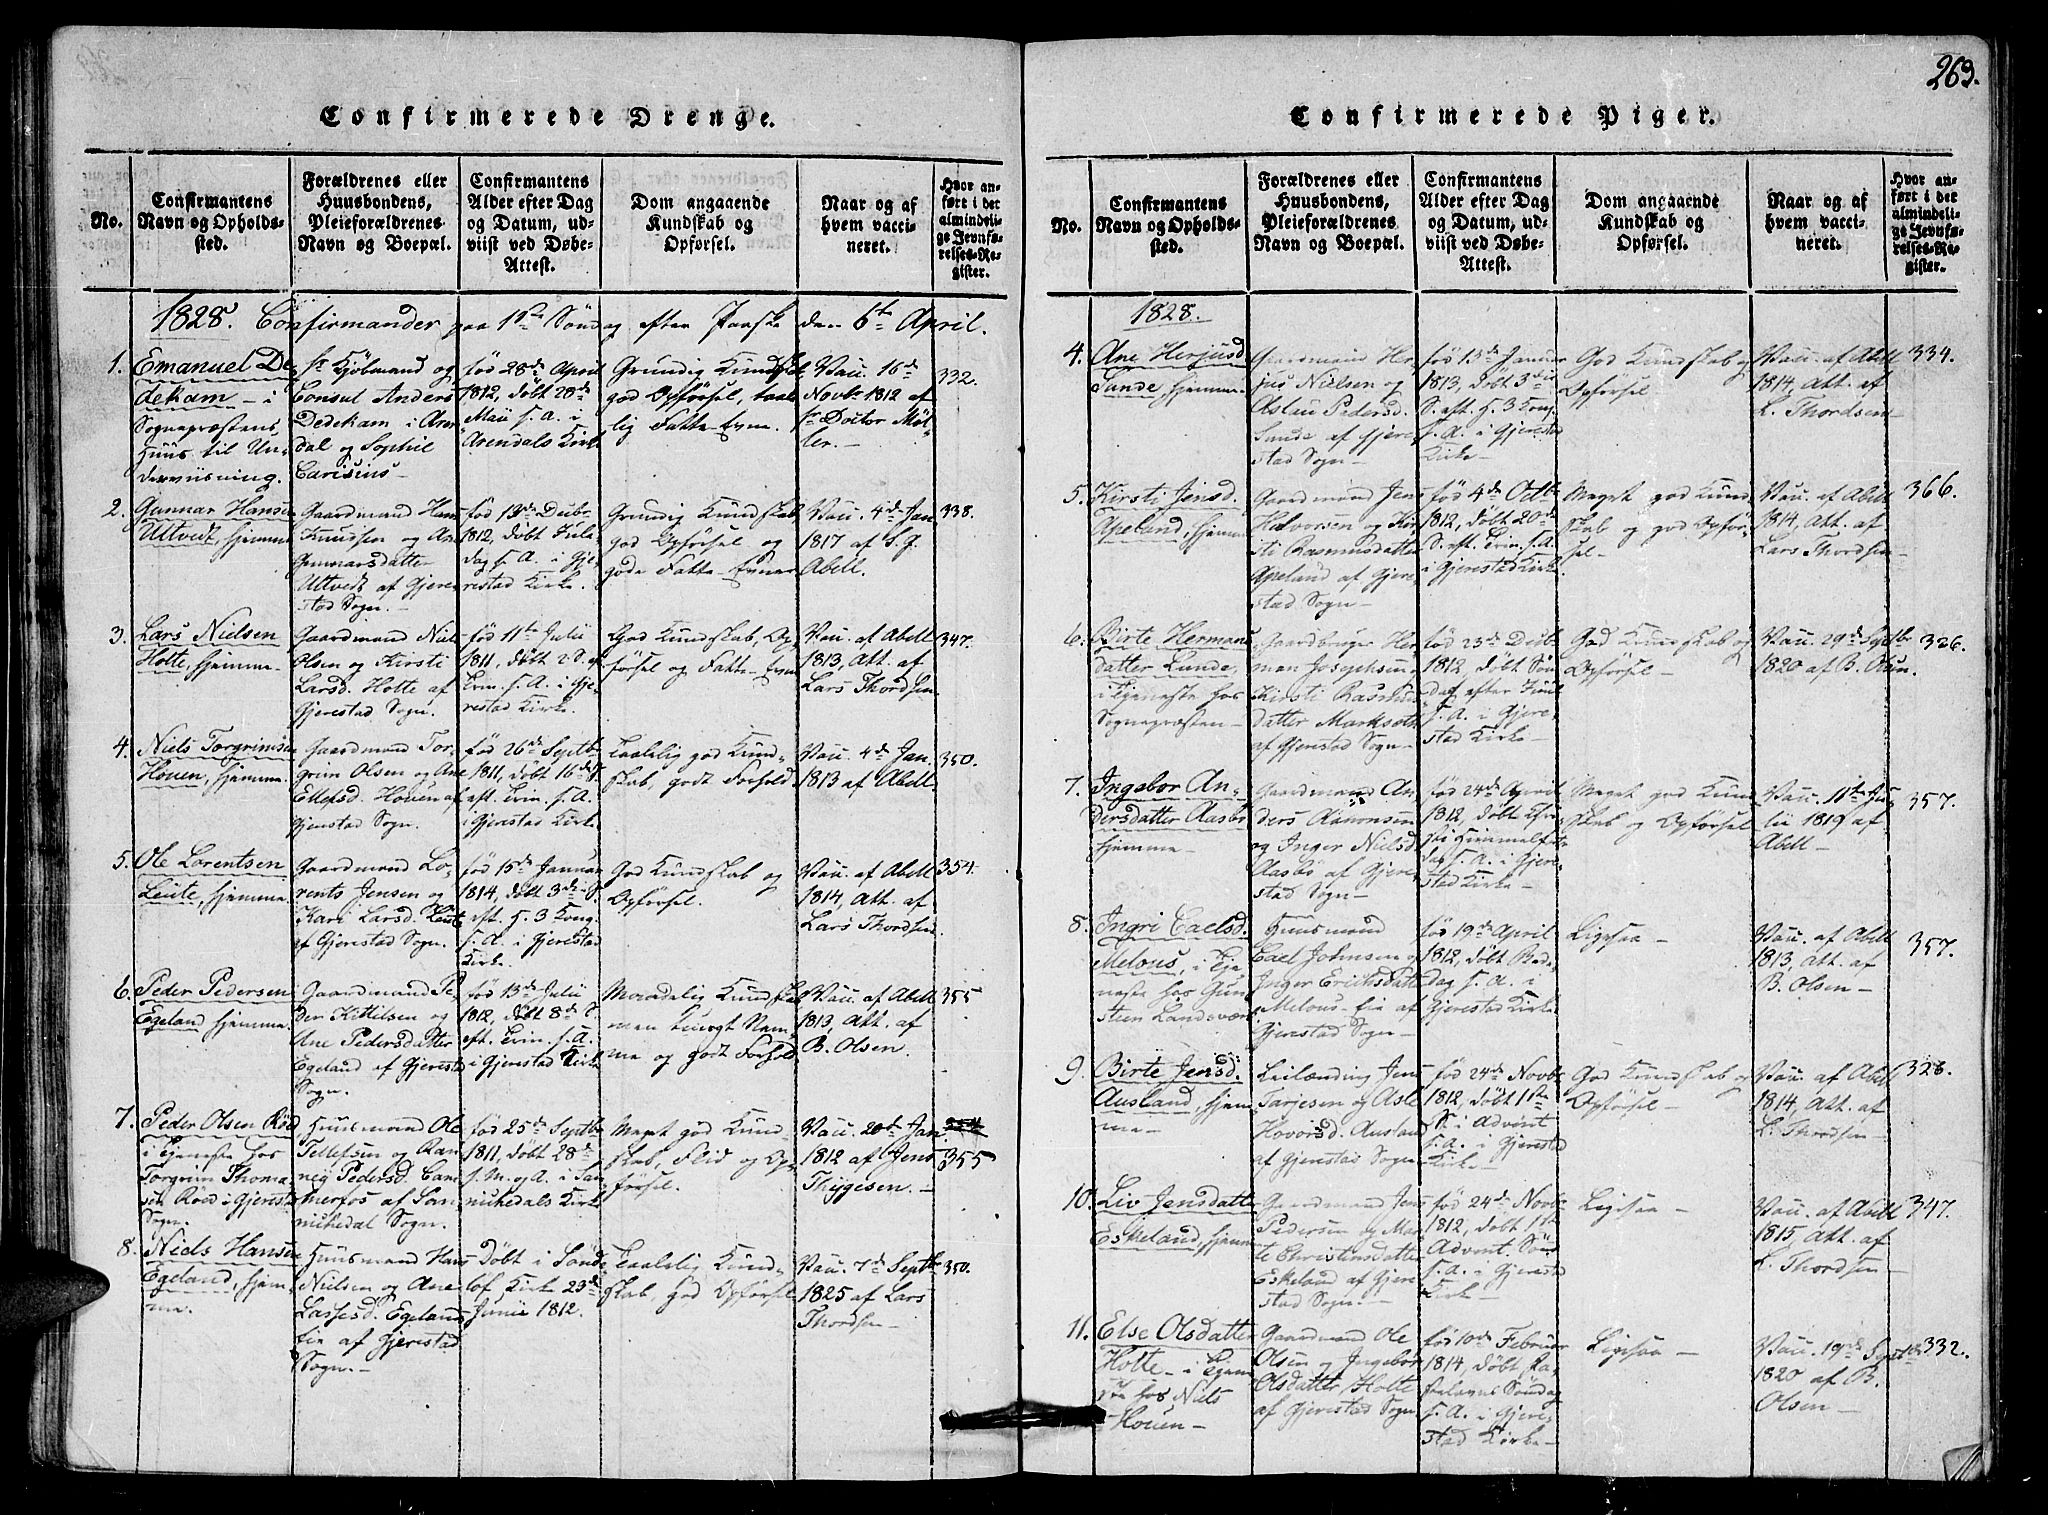 Confirmerede Drenge.
No.
Confirmantens
Navn og Opholds-
sted.
Forældrenes eller
Huusbondens,
Pleieforældrenes
Navn og Boepæl.
Confirmantens
Alder efter Dag
og Datum, ud-
viist ved Døbe-
Attest.
Dom angaaende
Kundskab og
Opførsel.
Naar og af
hvem vacci-
neret.
Hvor an-
ført i det
almindeli-
ge Jevnfø-
relses-Re-
gister.
1828. Confirmander paa 1ste Søndag efter Paaske den 6te April.
1.
Emanuel De-
dekam - i
Sognepræstens
Huus til Un-
derviisning.
Hr Kjøbmand og
Consul Anders
Dedekam i Aren-
dal og Sophie
Carisius
fød 28de April
1812, døbt 28de
Maii s. A. i
Arendals Kirke
Grundig Kundskab,
god Opførsel, taale-
lig Fatte-Evne.
Vacc. 16de
Novbr 1812 af
Hr Doctor Møl-
ler.
332.
2.
Gunnar Hansen
Ultvedt, hjemme
Gaardmand Hans
Knudsen og Ane
Gunnarsdatter
Ultvedt af Gjere-
stad Sogn.
1812, døbt Jule-
dag s. A. i Gje-
restad Kirke.
Grundig Kundskab
god Opførsel og
gode Fatte-Evner
Vacc. 4de Jan.
1817 af S. G.
Abell
338.
3.
Lars Nielsen
Holte, hjemme
Gaardmand Niels
Olsen og Kirsti
Larsd. Holte af
Gjerestad Sogn.
fød 11te Julii
1811, døbt 2 S. e.
Trin. s. A. i Gje-
restad Kirke.
God Kundskab, Op-
førsel og Fatte-Evne
Vacc. af Abell
1813, Att. af
Lars Thordsen
347.
4.
Niels Torgrimsen
Hoven, hjemme
Gaardmand Tor-
grim Olsen og Ane
Ellefsd. Hoven af
Gjerestad Sogn.
fød 26de Septb.
1811, døbt 16de S.
eft. Trin. s. A.
i Gjerestad Kirke.
Taalelig god Kund-
skab, godt Forhold
Vacc. 4de Jan.
1813 af Abell
350.
5.
Ole Lorentsen
Leite, hjemme
Gaardmand Lo-
rents Jensen og
Kari Larsd. Leite
af Gjerestad Sogn.
fød 15de Januar
1814, døbt 3de S.
eft. H. 3 Kong.
s. A. i Gjerestad
Kirke.
God Kundskab og
Opførsel.
Vacc. af Abell
1814, Att. af
Lars Thordsen
354.
6.
Peder Pedersen
Egeland hjemme.
Gaardmand Pe-
der Kittilsen og
Ane Pedersdatter
Egeland af Gjerestad
Sogn.
fød 13de Julii
1812, døbt 8de S.
eft. Trin. s. A.
i Gjerestad Kirke
Maadelig Kundskab
men
og godt Forhold
Vacc. af Abell
1813, Att. af
B. Olsen.
355
7.
Peder Olsen Röd
i Tjeneste hos
Torgrim Thoma-
sen Röed i Gjerestad
Sogn.
Huusmand Ole
Tellefsen og Ran-
neg Pedersd. Cam-
merfos af San-
nikedal Sogn.
fød 25de Septb.
1811, døbt 28de
s. M. og A. i San-
nikedals Kirke
Meget god Kund-
skab, Flid og Op-
førsel.
Vacc. 20de Jan.
1812 af Jens
Thygesen.
355
8.
Niels Hansen
Egeland, hjem-
me
Huusmand Hans
Nielsen og Ane
Lassesd. Egelands
Eie af Gjerestad
Sogn.
Døbt i Sønde-
løf Kirke 23de
Junii 1812.
Taalelig Kund-
skab, god Opførsel
Vacc. 7de Septbr
1825 af Lars
Thordsen
350.
263.
Confirmerede Piger.
No.
Confirmantens
Navn og Opholds-
sted.
Forældrenes eller
Huusbondens,
Pleieforældrenes
Navn og Boepæl.
Confirmantens
Alder efter Dag
og Datum, ud-
viist ved Døbe-
Attest.
Dom angaaende
Kundskab og
Opførsel.
Naar og af
hvem vacci-
neret.
Hvor an-
ført i det
almindeli-
ge Jevnfø-
relses-Re-
gister.
1828.
4.
Ane Herjusd.
Sande, hjemme
Gaardmand Her-
jus Nielsen og
Aslau Pedersd.
Sande af Gjere-
stad Sogn
fød 13de Januar
1813, døbt 3die
S. eft. H. 3 Kong.
s. A. i Gjerestad
Kirke
God Kundskab og
Opførsel
Vacc. af Abell
1814, Att. af
L. Thordsen
334.
5.
Kirsti Jensd.
Apeland, hjemme
Gaardmand Jens
Halvorsen og Kir-
sti Rasmusdatter
Apeland af Gjere-
stad Sogn
fød 4de Octb.
1812, døbt 20de
S. eft. Trin. s. A.
i Gjerestad Kirke
Meget god Kund-
skab og god Opfør-
sel
Vacc. af Abell
1814, Att. af
Lars Thordsen
366.
6.
Birte Hermans-
datter Lunde,
i Tjeneste hos
Sognepræsten
Gaardbruger Her-
man Josephsen
Kirsti Rasmus-
datter
af Gjerestad Sogn
fød 23de Decb.
1812, døbt Søn-
dag efter Juul
s. A. i Gjere-
stad Kirke
God Kundskab og
Opførsel
Vacc. 29de Septbr
1820 af B. Olsen.
326.
7.
Ingebor An-
dersdatter Aasbö
hjemme
Gaardmand An-
ders Aanonsen
og Inger Nielsd.
Aasbö af Gjere-
stad Sogn
fød 24de April
1812, døbt Chri-
sti Himmelfarts-
dag s. A. i Gjere-
stad Kirke
Meget god Kund-
skab og Opførsel
Vacc. 11te Ju-
lii 1819 af
Abell
357.
8.
Ingri Caelsd.
Melous, i Tje-
neste hos Gun-
steen Landsværk
Huusmand
Cael Johnsen og
Inger Erichsdatter
Melous-Eie af
Gjerestad Sogn
fød 19de April
1812, døbt Bede-
Dag s. A. i
Gjerestad Kirke
Ligesaa
Vacc. af Abell
1813, Att. af
B. Olsen
357.
9.
Birte Jensd.
Ausland, hjem-
me
Leilænding Jens
Tarjesen og Asle
Hovorsd. Ausland
af Gjerestad Sogn
fød 24de Novb.
1812, døbt 1ste
S. i Advent
s. A. i Gjerestad
Kirke
God Kundskab og
Opførsel
Vacc. af Abell
1814, Att. af
L. Thordsen
326.
10.
Liv Jensdatter
Eskeland, hjemme
Gaardmand Jens
Pedersen og Mar-
te Christensdatter
Eskeland af Gjere-
stad Sogn.
fød 24de Novb.
1812, døbt 1ste
Advent. Søn.
s. A. i Gjerestad
Kirke
Ligesaa
Vacc. af Abell
1815, Att. af
L. Thordsen
347.
11.
Else Olsdatter
Holte - i Tjene-
ste hos Niels
Hoven
Gaardmand Ole
Olsen og Ingebor
Olsdatter Holte
af Gjerestad Sogn
fød 10de Februar
1814, døbt Fa-
stelavns Søndag
s. A. i Gjere-
stad Kirke
Ligesaa
Vacc. 19de Septbr
1820 af B.
Olsen
332.